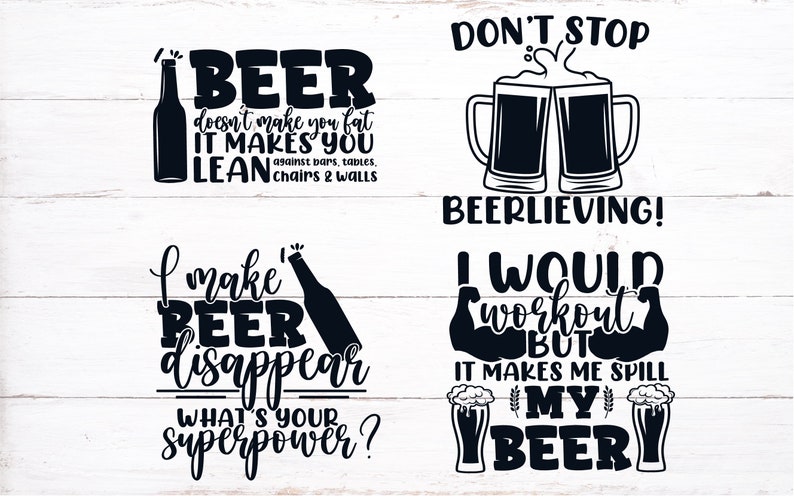 BEER
doesn't make you fat
IT MAKES YOU
LEAN against bars, tables,
chairs & walls
DON'T STOP
BEERLIEVING!
I make
BEER
disappear
WHAT'S YOUR
superpower?
I WOULD
workout
BUT
IT MAKES ME SPILL
MY
BEER